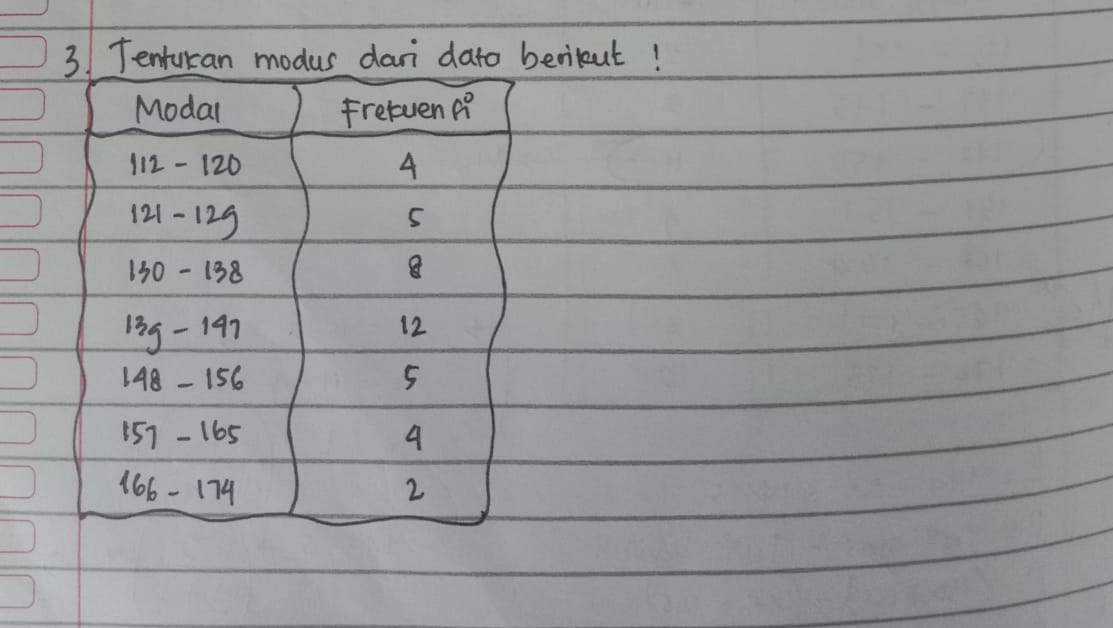 3. Tentukan modus dari data berikut !
Modal Frekuensi
112 - 120 4
121 - 129 5
130 - 138 8
139 - 147 12
148 - 156 5
157 - 165 4
166 - 174 2